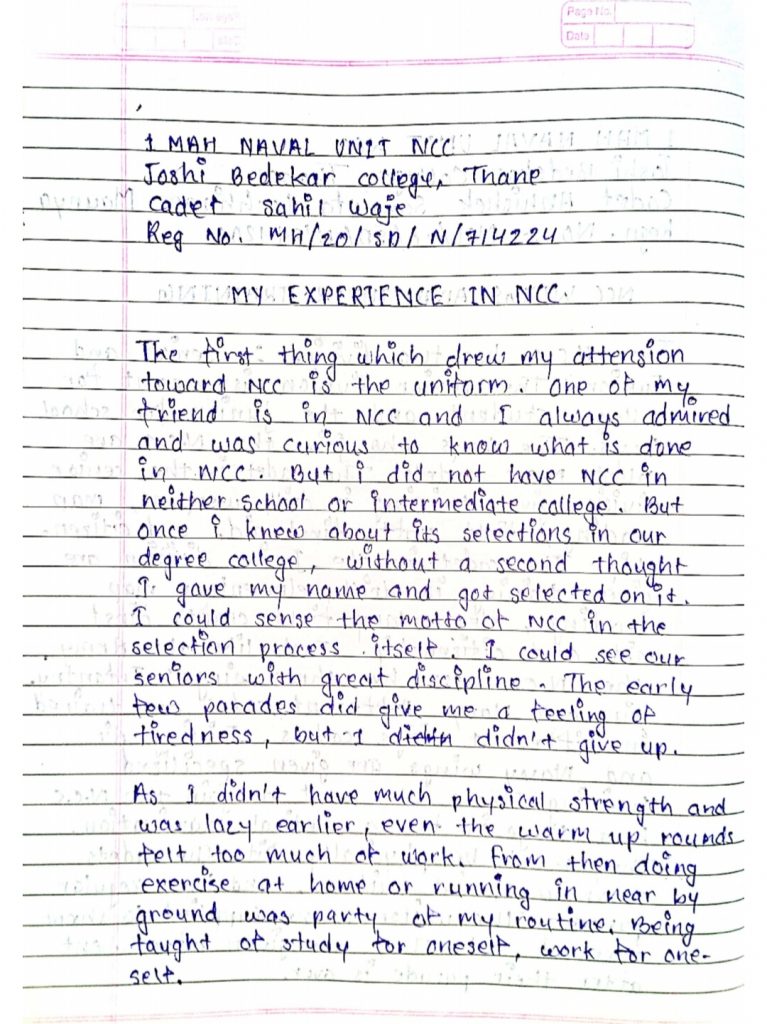 Page No.
Date
1 MAH NAVAL UNIT NCC
Joshi Bedekar college, Thane
Cadet Sahil Waje
Reg No. MH/20/SD/N/714224
MY EXPERIENCE IN NCC.
The first thing which drew my attension
toward NCC is the uniform. One of my
friend is in NCC and I always admired
and was curious to know what is done
in NCC. But i did not have NCC in
neither school or intermediate college. But
once i knew about its selections in our
degree college, without a second thought
I gave my name and got selected on it.
I could sense the motto of NCC in the
selection process itself. I could see our
seniors with great discipline. The early
few parades did give me a feeling of
tiredness, but I didn't give up.
As I didn't have much physical strength and
was lazy earlier, even the warm up rounds
felt too much of work. From then doing
exercise at home or running in near by
ground was party of my routine. Being
taught of study for oneself, work for one-
self.